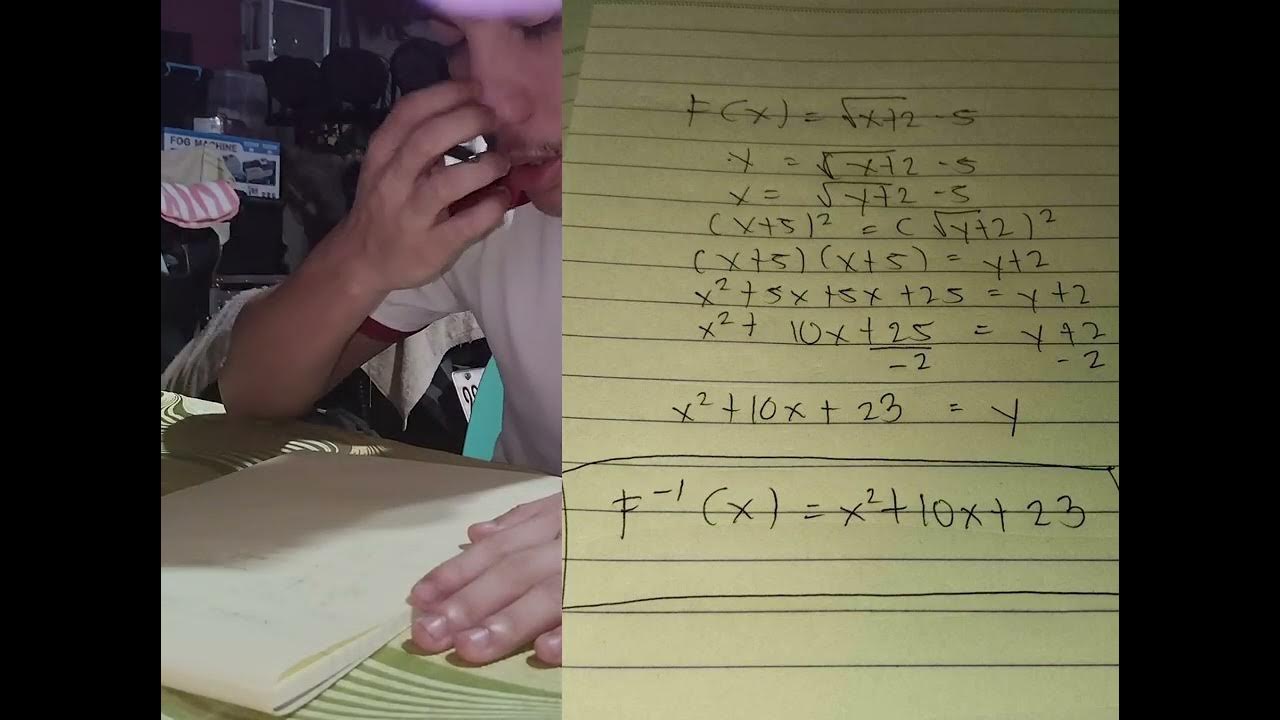 FOG MACHINE
F(x) = √x+2 - 5
y = √x+2 - 5
x = √y+2 - 5
(x+5)² = (√y+2)²
(x+5)(x+5) = y+2
x² + 5x + 5x + 25 = y+2
x² + 10x + 25 = y + 2
- 2 - 2
x² + 10x + 23 = y
F⁻¹(x) = x² + 10x + 23